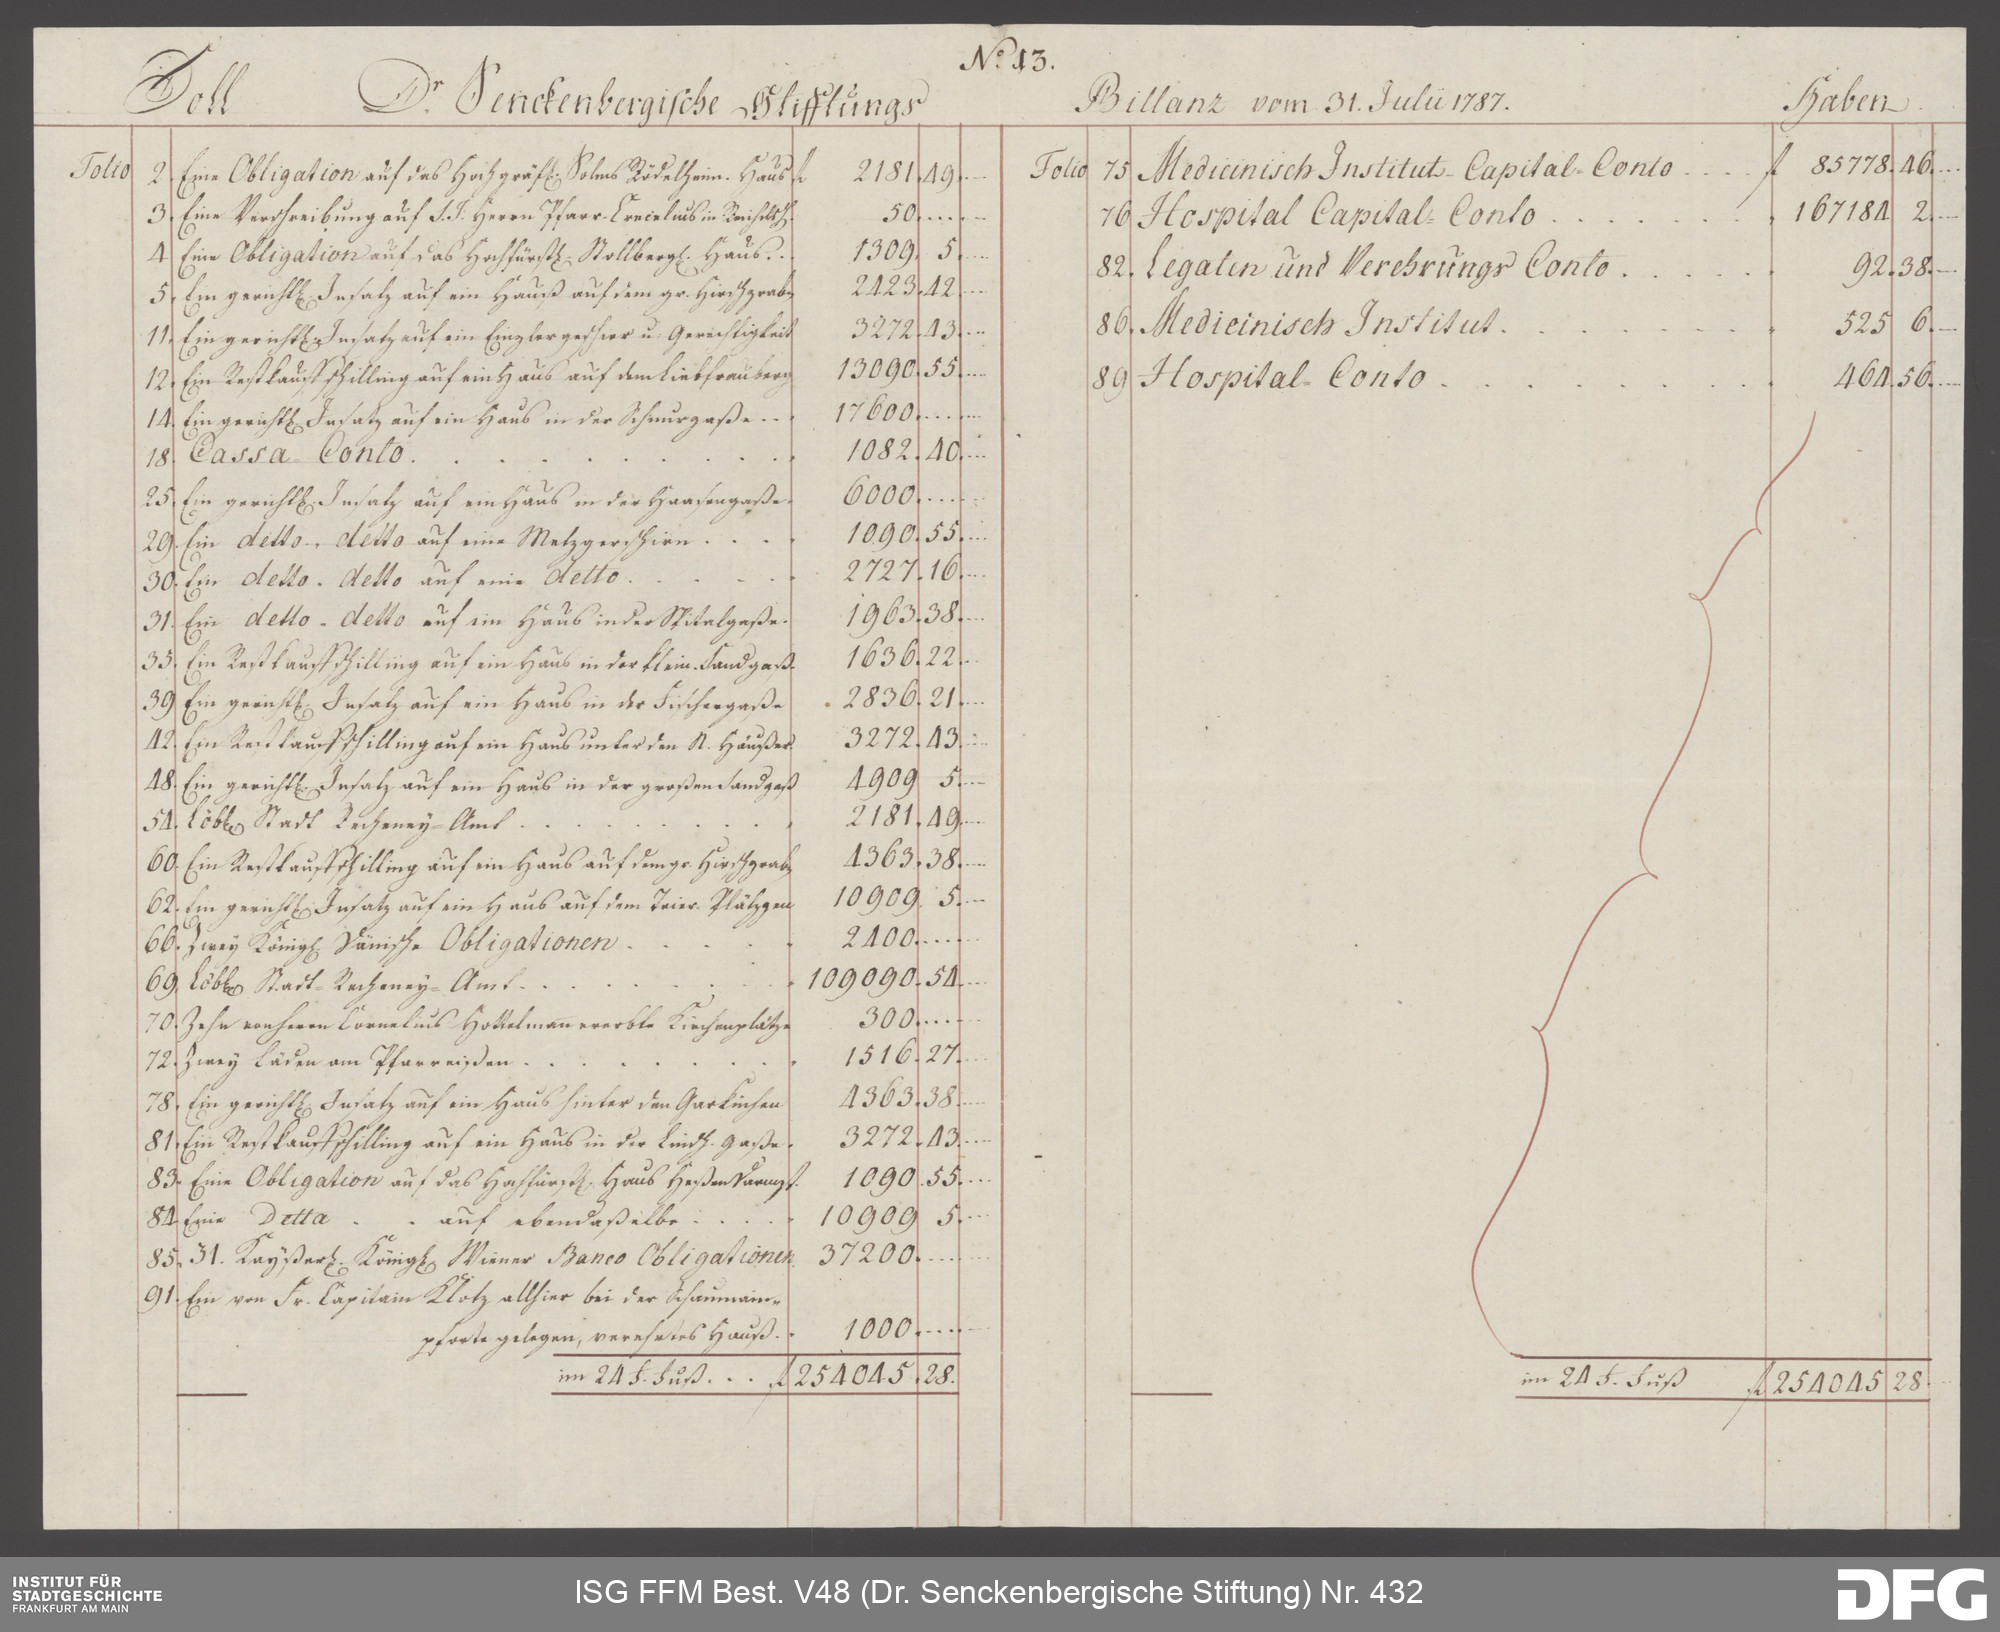 No. 13.
Soll Dr. Senckenbergische Stifftungs Billanz vom 31. Julii 1787. Haben
Folio 2 Eine Obligation auf das Hochgräfl. Solms Rödelheim. Haus f 2181. 49.
3. Eine Verschreibung auf S. T. Herrn Pfarr. Crecelius in 50.
4. Eine Obligation auf das Hochfürstl. Stollbergl. Haus. 1309. 5.
5. Ein gerichtl. Insatz auf ein Hauß auf dem gr. Hirschgrabn 2423. 42.
11. Ein gerichtl. Insatz auf ein u. Gerechtigkeit 3272. 43.
12. Ein Restkaufschilling auf ein Haus auf dem Liebfrauberg 13090. 55.
14. Ein gerichtl. Insatz auf ein Haus in der Schnurgaße 17600.
18. Cassa-Conto. 1082. 40.
25. Ein gerichtl. Insatz auf ein Haus in der Haasengaße. 6000.
29. Ein detto. detto auf eine Metzgerschirn 1090. 55.
30. Ein detto. detto auf eine detto. 2727. 16.
31. Ein detto. detto auf ein Haus in der Spitalgaße. 1963. 38.
35. Ein Restkaufschilling auf ein Haus in der klein. Sandgaß. 1636. 22.
39. Ein gerichtl. Insatz auf ein Haus in der Fischergaße 2836. 21.
42. Ein Restkaufschilling auf ein Haus unter den N. Häußer. 3272. 43.
48. Ein gerichtl. Insatz auf ein Haus in der großen Sandgaß 4909 5.
54. Löbl. Stadt Recheney-Amt 2181. 49.
60. Ein Restkaufschilling auf ein Haus auf dem gr. Hirschgrabn 4363. 38.
62. Ein gerichtl. Insatz auf ein Haus auf dem Trier. Plätzgen 10909. 5.
66. Zwey Königl. Dänische Obligationen 2400.
69. Löbl. Stadt-Recheney-Amt 109090. 54.
70. Zehn von Herrn Cornelius Hottelmann ererbte Kirchenplätze 300.
72. Zwey Läden am Pfarreisen 1516. 27.
78. Ein gerichtl. Insatz auf ein Haus hinter den Garküchen 4363. 38.
81. Ein Restkaufschilling auf ein Haus in der Lindh. Gaße. 3272. 43.
83. Eine Obligation auf das Hochfürstl. Haus Heßen Darmst. 1090. 55.
84 Eine Detta auf ebendaßelbe 10909 5.
85. 31. Kayßerl. Königl. Wiener Banco Obligationen 37200.
91. Ein von Fr. Capitain Klotz allhier bei der Schaumain-
pforte gelegen, verehrtes Hauß. 1000.
im 24 f. Fuß. f 254045. 28.
Folio 75 Medicinisch Institut-Capital-Conto f 85778. 46.
76 Hospital Capital-Conto 167184 2.
82. Legaten und Verehrungs Conto 92. 38.
86. Medicinisch Institut. 525 6.
89 Hospital-Conto 464. 56.
im 24 f. Fuß f 254045 28
INSTITUT FÜR
STADTGESCHICHTE
FRANKFURT AM MAIN
ISG FFM Best. V48 (Dr. Senckenbergische Stiftung) Nr. 432
DFG